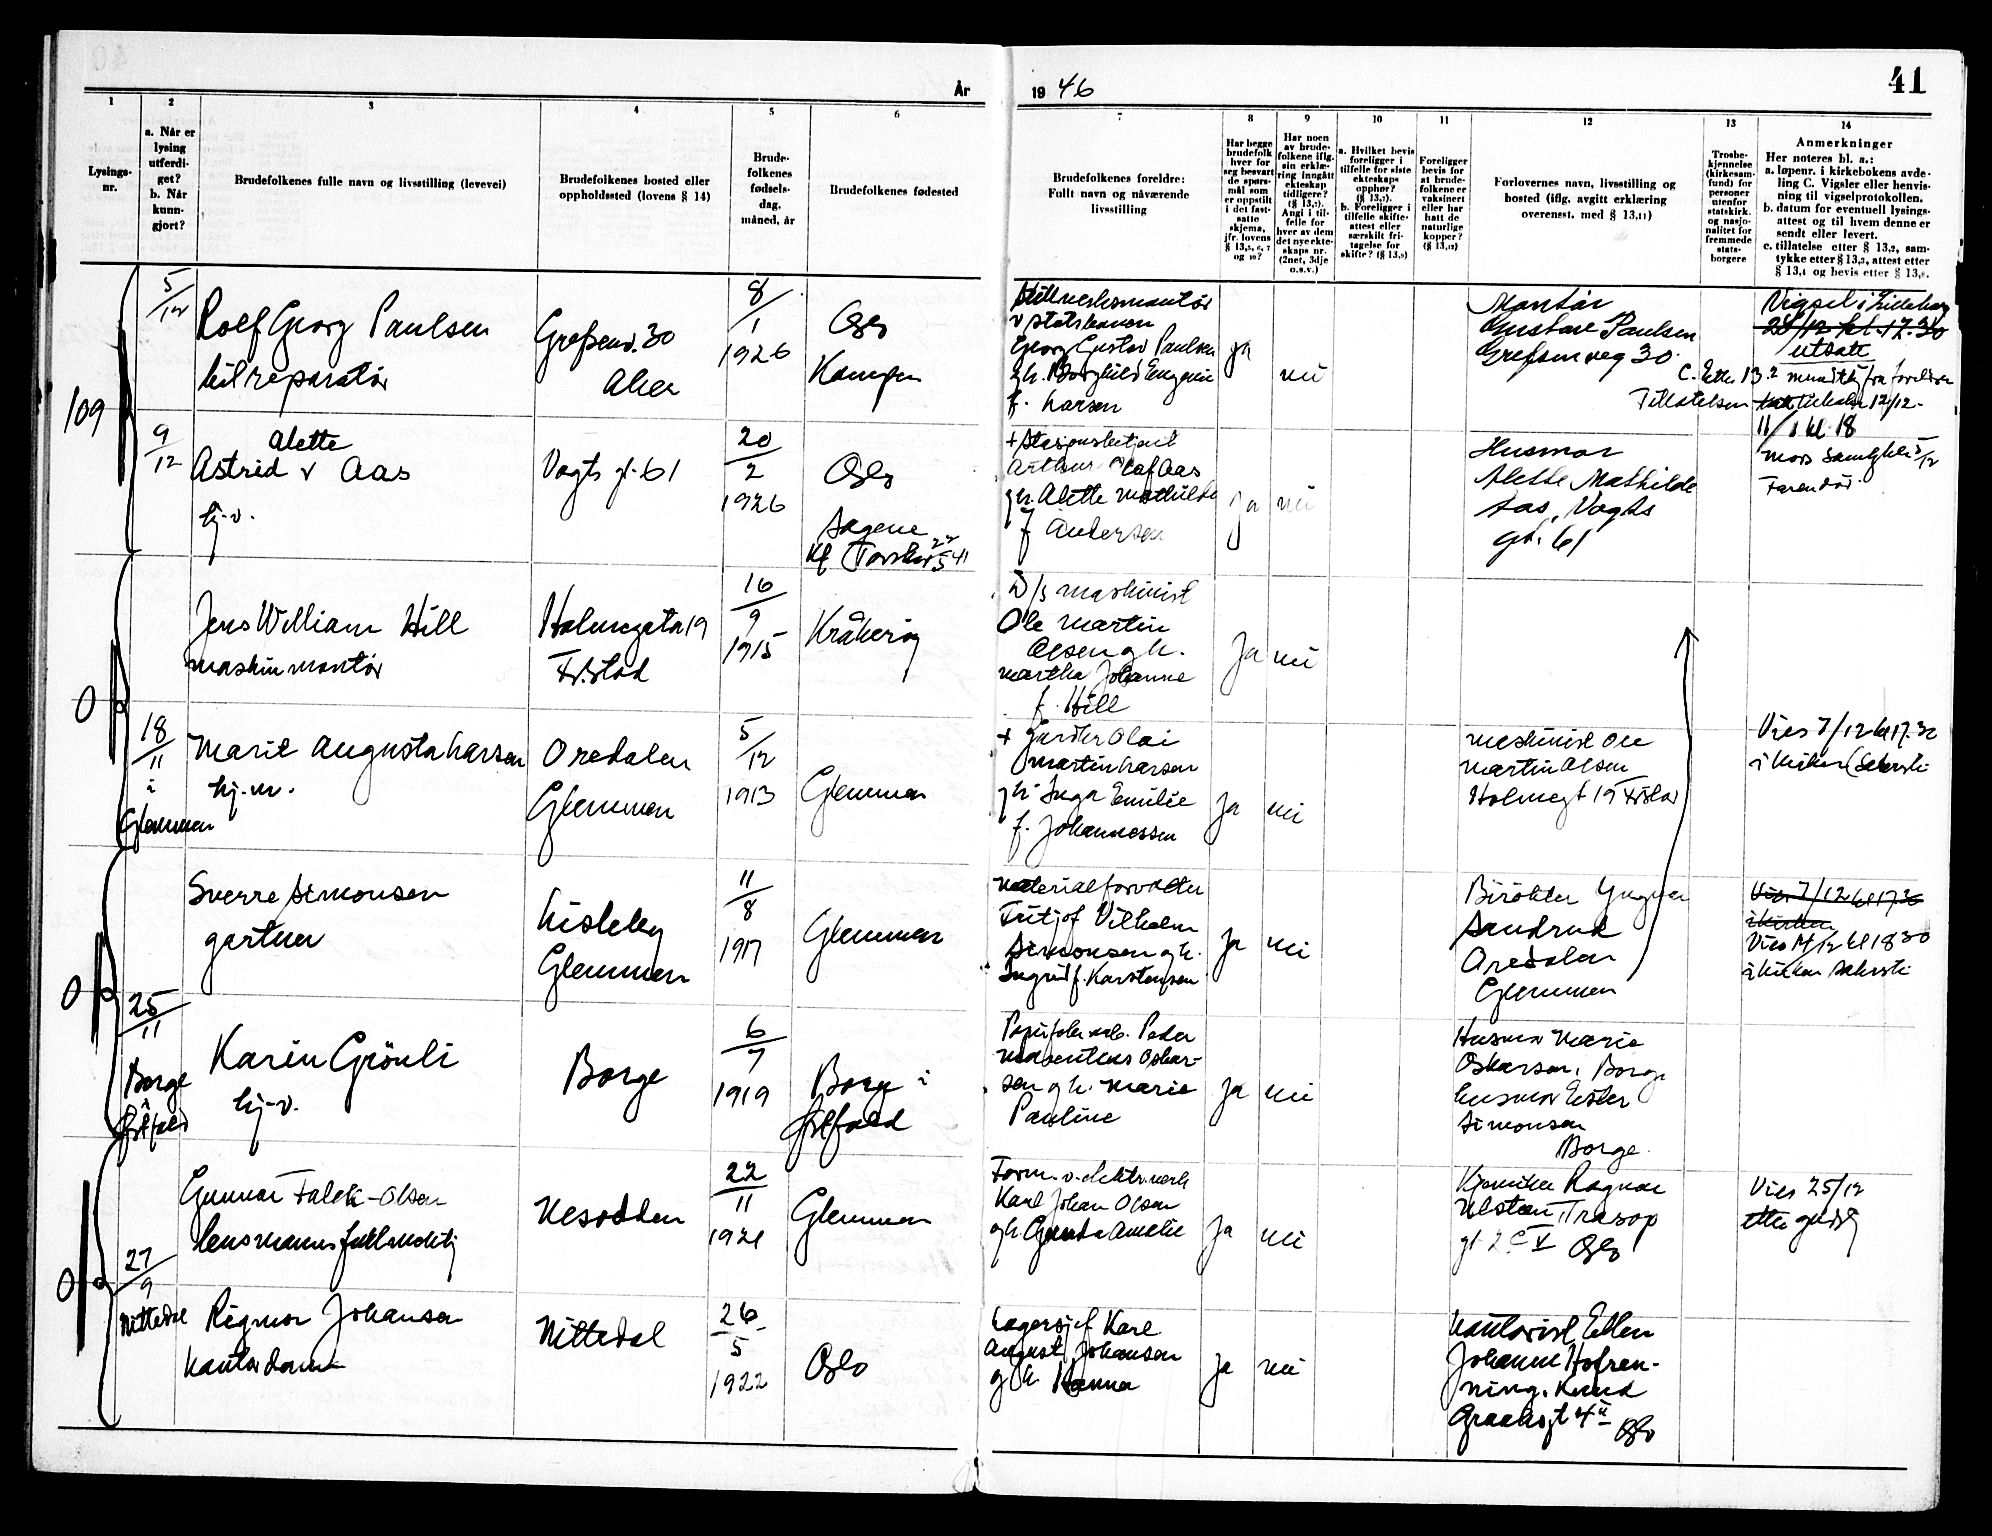 År 1946
41
1
Lysings-
nr.
2
a. Når er
lysing
utferdi-
get?
b. Når
kunn-
gjort?
3
Brudefolkenes fulle navn og livsstilling (levevei)
4
Brudefolkenes bosted eller
oppholdssted (lovens § 14)
5
Brude-
folkenes
fødsels-
dag,
måned, år
6
Brudefolkenes fødested
7
Brudefolkenes foreldre:
Fullt navn og nåværende
livsstilling
8
Har begge
brudefolk
hver for
seg besvart
de spørs-
mål som
er oppstilt
i det fast-
satte
skjema,
jfr. lovens
§ 13,5, 6, 7
og 10?
9
Har noen
av brude-
folkene iflg.
sin erklæ-
ring inngått
ekteskap
tidligere?
(§ 13,7).
Angi i til-
felle for
hver av dem
det nye ekte-
skaps nr.
(2net, 3dje
o.s.v.)
10
a. Hvilket bevis
foreligger i
tilfelle for siste
ekteskaps
opphør?
(§ 13,7).
b. Foreligger i
tilfelle skifte-
attest eller
særskilt fri-
tagelse for
skifte? (§ 13,9)
11
Foreligger
bevis for
at brude-
folkene er
vaksinert
eller har
hatt de
naturlige
kopper?
(§ 13,12)
12
Forlovernes navn, livsstilling og
bosted (iflg. avgitt erklæring
overenst. med § 13,11)
13
Trosbe-
kjennelse
(kirkesam-
fund) for
personer
utenfor
statskirk.
og nasjo-
nalitet for
fremmede
stats-
borgere
14
Anmerkninger
Her noteres bl. a.:
a. løpenr. i kirkebokens avde-
ling C. Vigsler eller henvis-
ning til vigselprotokollen.
b. datum for eventuell lysings-
attest og til hvem denne er
sendt eller levert.
c. tillatelse etter § 13,2, sam-
tykke etter § 13,3, attest etter
§ 13,4 og bevis etter § 13,8.
109
5/12
Rolf Georg Paulsen
bilreparatør
Grefsenv. 30
Aker
8/1
1926
Oslo
Kampen
Stillverksmontör
v statsbanen
Georg Gustav Paulsen
g.h. Borghild Eugenie
f. Larsen
ja
nei
Montør
Gustav Paulsen
Grefsenveg 30
28/12 kl. 17.30
utsatt
C. Etter 13.2 muntlig fra foreldrene
Tillatelsen 12/12.
11/1 kl. 18
9/12
Alette
Astrid v Aas
hj.v.
Vogts gt. 61
20/2
1926
Oslo
Sagene
+ Stasjonsbetjent
Arthur Olaf Aas
g.h. Alette Mathilde
f Andersen
ja
nei
Husmor
Alette Mathilde
Aas, Vogts
gt. 61
5/12
0
Jens William Hill
maskinmontör
Holmegata 19
Fr.stad
16/9
1915
Kråkeröy
D/s maskinist
Ole Martin
Olsen g.h.
Martha Johanne
f. Hill
Ja
nei
18/11
i
Glemmen
Marit Augusta Larsen
hj.m.
Oredalen
Glemmen
5/12
1913
Glemmen
+ Gårdbr Olai
Martin Larsen
g.h. Inga Emilie
f. Johannessen
ja
nei
maskinist Ole
Martin Olsen
Holmegt 19 Fr.stad
Vies 7/12 kl 17.30
i kirken
0
Sverre Simonsen
gartner
Lisleby
Glemmen
11/8
1917
Glemmen
Materialforvalter
Fritjof Vilhelm
Simonsen g.h.
Ingrid f. Karstensen
ja
nei
Birökter Yngvar
Sandrud
Oredalen
Glemmen
Vies 7/12 kl 17.30
i kirken
Vies 14/12 kl 18 30
i kirken
25/11
Borge
i
Østfold
Karin Grönli
hj.v.
Borge
6/7
1919
Borge i
Østfold
Peder
Oskar-
sen g.h. Marie
Pauline
ja
nei
Husmor Marie
Oskarsen, Borge
husmor Ester
Simonsen
Borge.
0
27/9
Nittedal
Gunnar Falck-Olsen
lensmannsfullmektig
Nesodden
22/11
1921
Glemmen
Form. v. elektr.verk
Karl Johan Olsen
g.h. Gunda Amelie
ja
nei
Kjemiker Ragnar
Trasop
gt. 2 C V Oslo
Vies 25/12
etter gudstj
Rigmor Johansen
kontordame
Nittedal
26/5
1922
Oslo
Lagersjef Karl
August Johansen
g.h. Hanna
ja
nei
kontorist Ellen
Johanne Hofren-
ning. Knud
Graahsgt 4 II Oslo